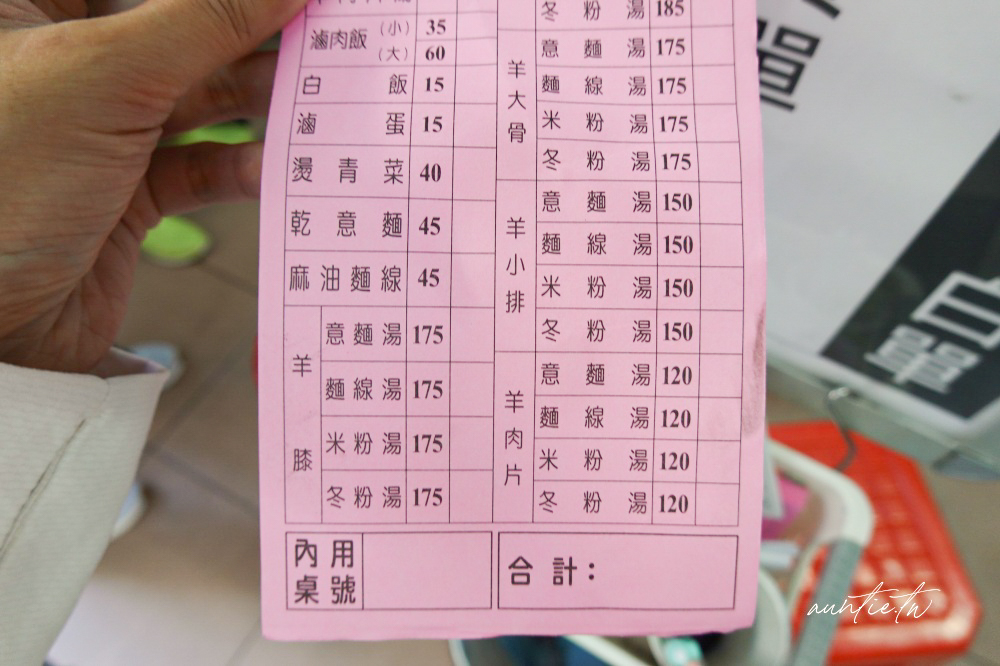 滷肉飯 (小) 35
(大) 60
白飯 15
滷蛋 15
燙青菜 40
乾意麵 45
麻油麵線 45
羊膝
意麵湯 175
麵線湯 175
米粉湯 175
冬粉湯 175
內用桌號
冬粉湯 185
羊大骨
意麵湯 175
麵線湯 175
米粉湯 175
冬粉湯 175
羊小排
意麵湯 150
麵線湯 150
米粉湯 150
冬粉湯 150
羊肉片
意麵湯 120
麵線湯 120
米粉湯 120
冬粉湯 120
合計:
auntie.tw